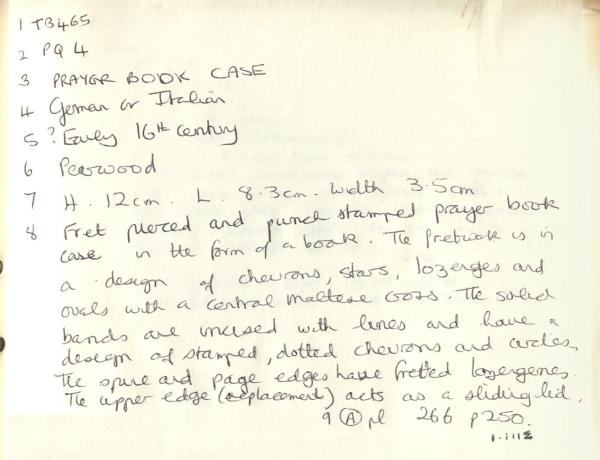 1 TB465
2 PQ 4
3 PRAYER BOOK CASE
4 German or Italian
5 ? Early 16th century
6 Pearwood
7 H. 12cm. L. 8.3cm. Width 3.5cm
8 Fret pierced and punch stamped prayer book
case in the form of a book. The fretwork is in
a design of chevrons, stars, lozenges and
ovals with a central maltese cross. The solid
bands are incised with lines and have a
design of stamped, dotted chevrons and circles.
The spine and page edges have fretted lozengenes.
The upper edge (replacement) acts as a sliding lid.
9 (A) pl 266 p250.